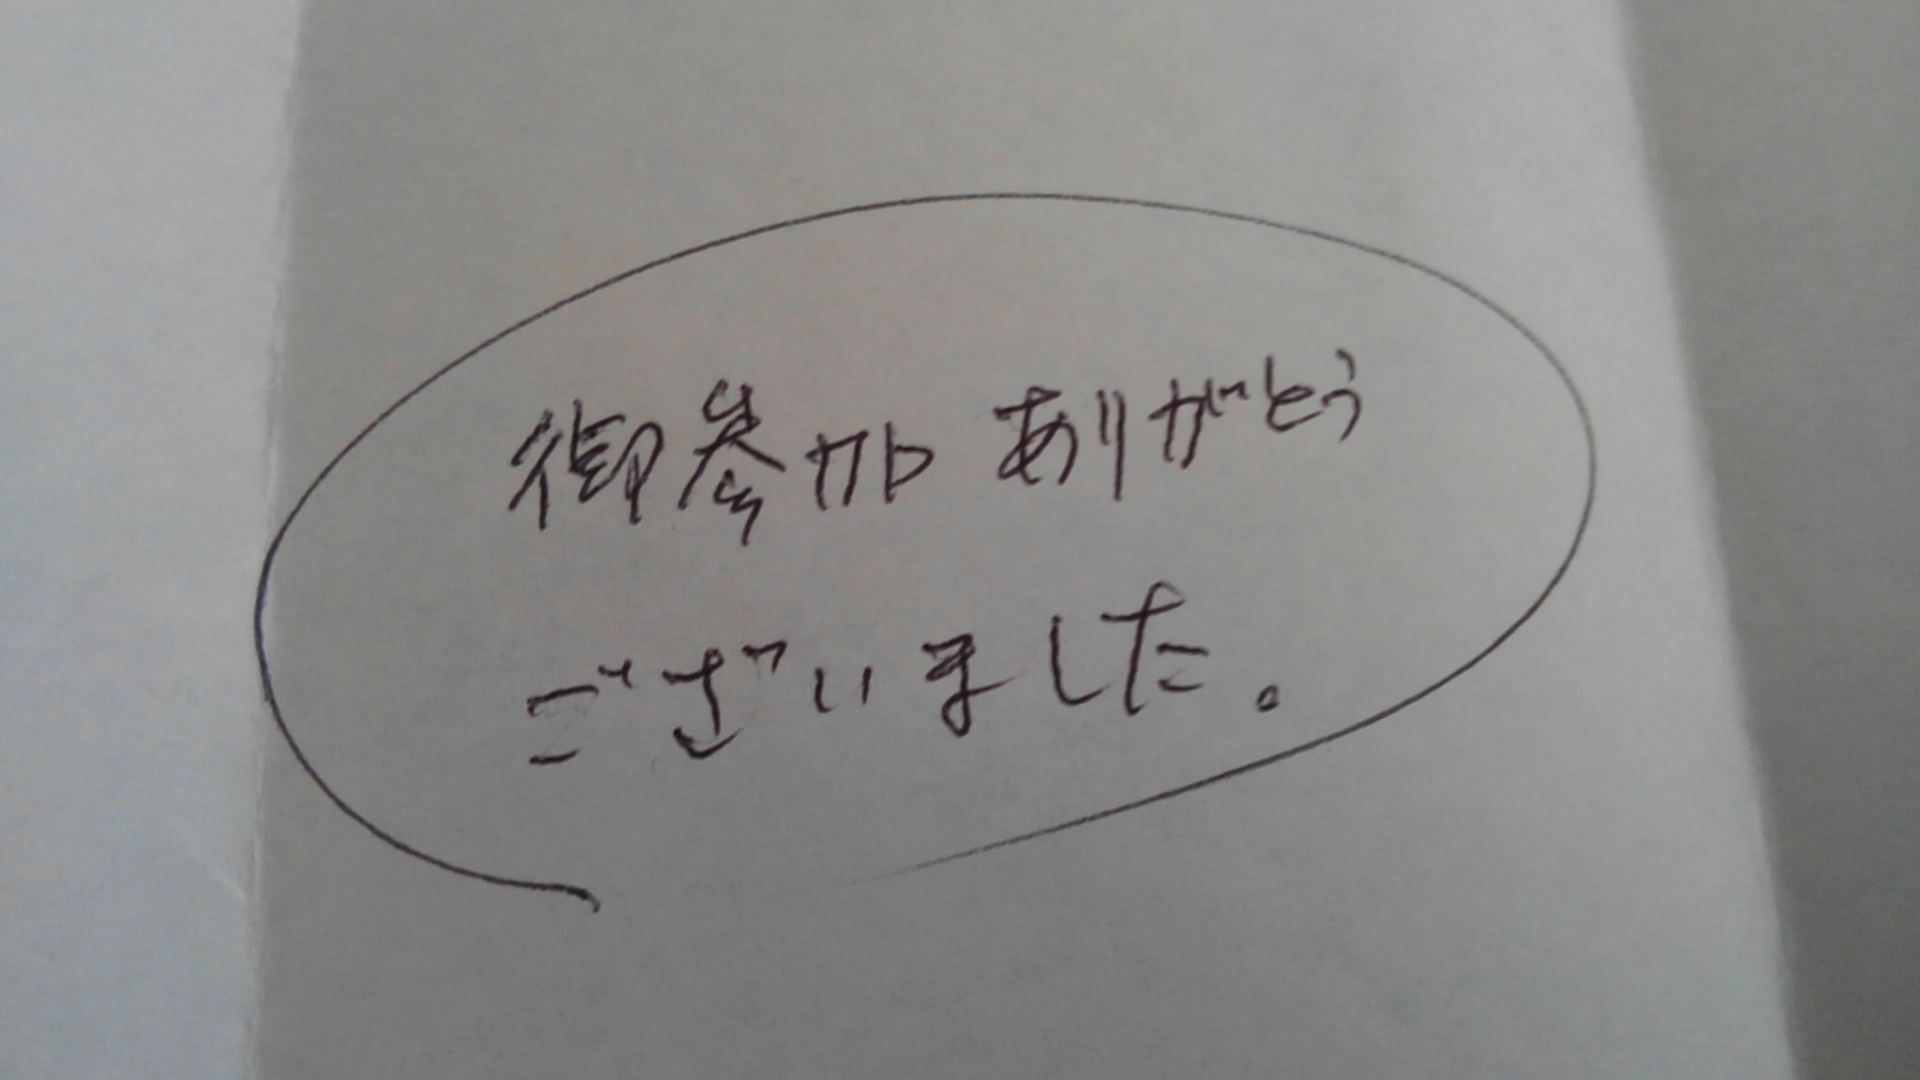 御参加ありがとう
ございました。